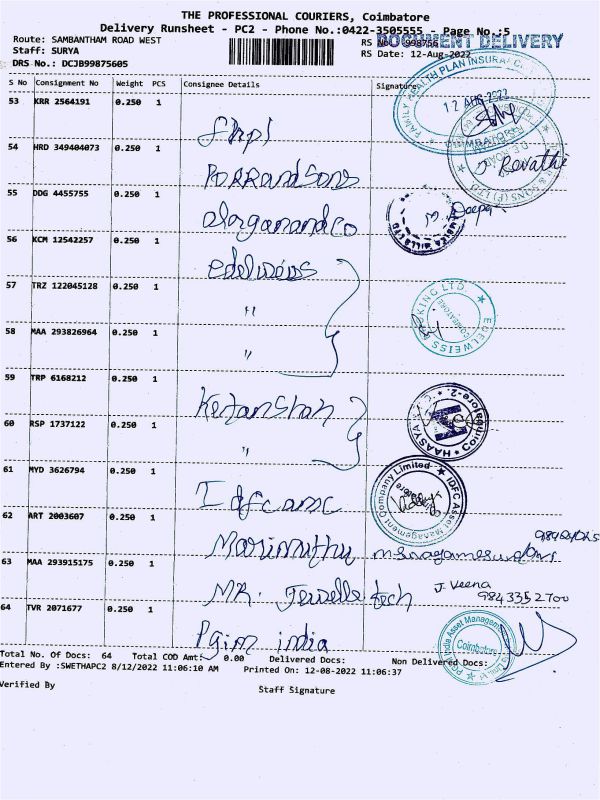 THE PROFESSIONAL COURIERS, Coimbatore
Delivery Runsheet - PC2 - Phone No.:0422-3505555 - Page No.:5
Route: SAMBANTHAM ROAD WEST
DOCUMENT DELIVERY
Staff: SURYA
RS Date: 12-Aug-2022
DRS No.: DCJB99875605
S No Consignment No Weight PCS Consignee Details Signature
53 KRR 2564191 0.250 1 fhpl
12 AUG 2022
54 HRD 349404073 0.250 1 PORRandSons
J. Revathi
55 DDG 4455755 0.250 1
M. Deepa
56 KCM 12542257 0.250 1 edelweis
57 TRZ 122045128 0.250 1 "
EDELWEISS BROKING LTD. COIMBATORE
58 MAA 293826964 0.250 1 "
59 TRP 6168212 0.250 1 Ketanshah
HAASYA Coimbatore-2.
60 RSP 1737122 0.250 1 "
61 MYD 3626794 0.250 1 Idfc amc
IDFC Asset Management Company Limited
62 ART 2003607 0.250 1 Marimuthu
63 MAA 293915175 0.250 1 MR. Jewelle tech
J. Veena
9843352700
64 TVR 2071677 0.250 1 Pgim india
PGIM India Asset Management Coimbatore
Total No. Of Docs: 64 Total COD Amt: 0.00 Delivered Docs: Non Delivered Docs:
Entered By :SWETHAPC2 8/12/2022 11:06:10 AM Printed On: 12-08-2022 11:06:37
Verified By
Staff Signature